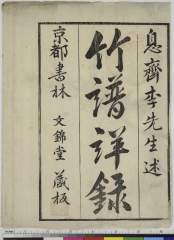 息齋李先生述
竹譜詳録
京都書林 文錦堂 藏板